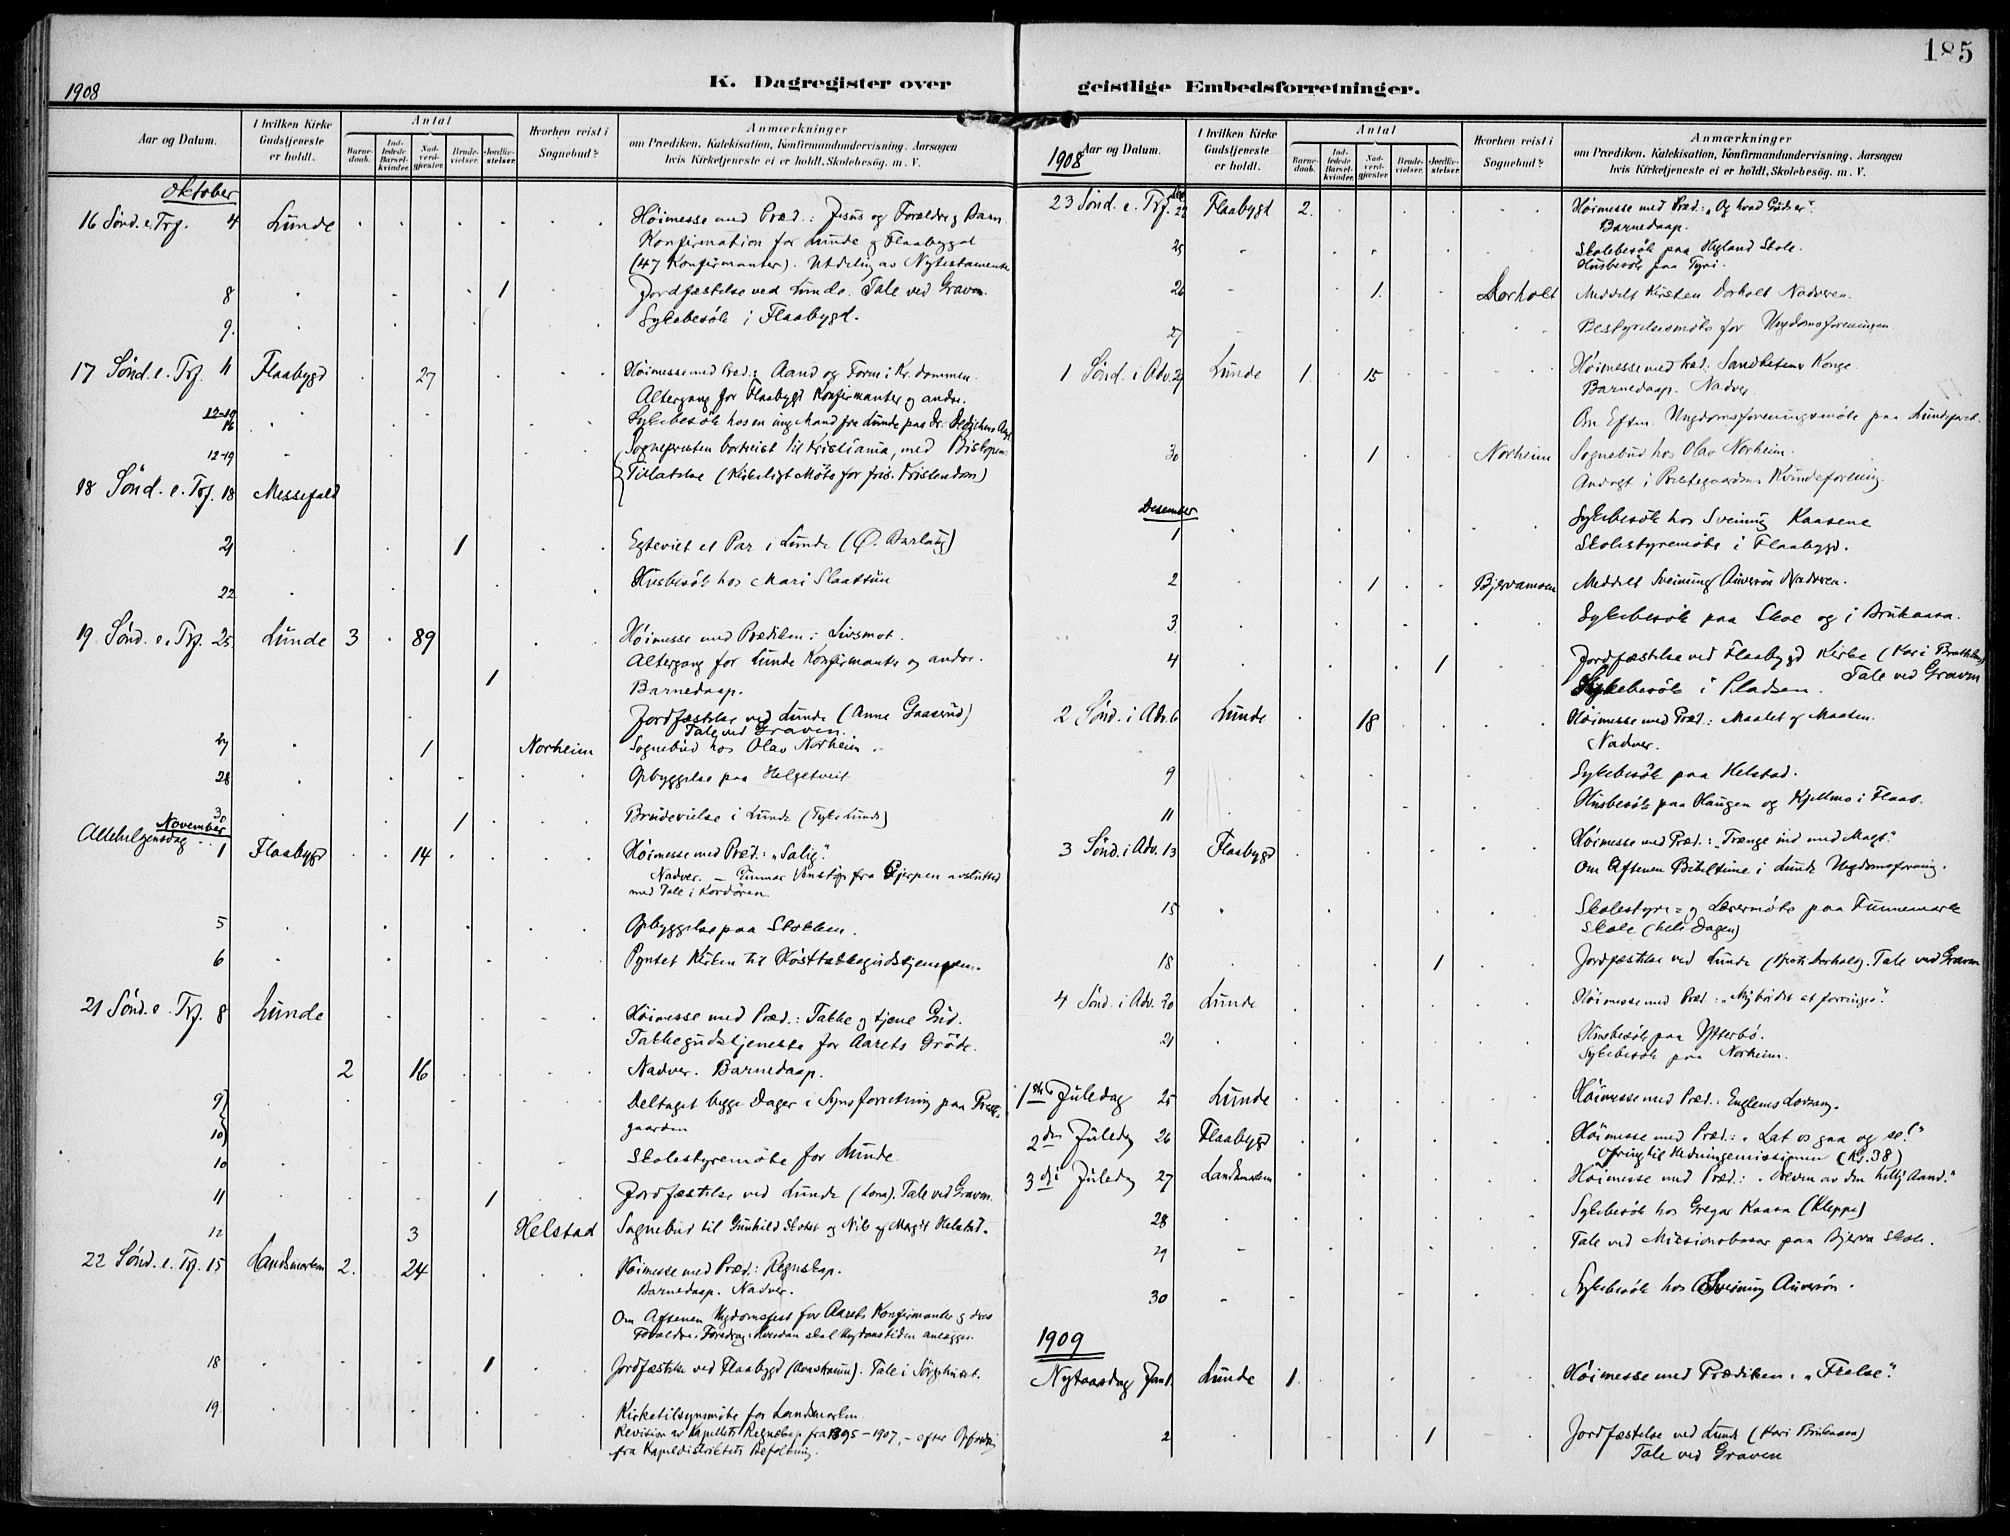 185
K. Dagregister over geistlige Embedsforretninger.
1908
Aar og Datum.
I hvilken Kirke Gudstjeneste er holdt.
Antal
Barnedaab.
Indledede Barselkvinder.
Nadverdgjester.
Brudevielser.
Jordfæstelser.
Hvorhen reist i Sognebud?
Anmærkninger
om Prædiken, Katekisation, Konfirmandundervisning, Aarsagen
hvis Kirketjeneste ei er holdt, Skolebesög. m. V.
Oktober
16 Sønd. e. Trf. 4 Lunde Høimesse med Præd.: Jesus og Forældre og Barn
Konfirmation for Lunde og Flaabygd
(47 Konfirmanter). Utdeling av Nytestamenter
8 1 Jordfæstelse ved Lunde. Tale ved Graven.
9. Sykebesøk i Flaabygd.
17 Sønd. e. Trf. 11 Flaabygd 27 Høimesse med Præd.: Aand og Form i Kr.dommen.
Altergang for Flaabygd Konfirmanter og andre.
12-19
16 Sykebesøk hos en ung Mand fra Lunde paa Dr.
12-19 Sognepresten bortreist til Kristiania, med Biskopens
18 Sønd. e. Trf. 18 Messefald Tilladelse (Kirkeligt Møte for fris. Kristendom)
21 1 Egteviet et Par i Lunde
22 Husbesøk hos Mari Slaattun
19. Sønd. e. Trf. 25 Lunde 3 89 Høimesse med Prædiken: Livsmot.
Altergang for Lunde Konfirmanter og andre.
1 Barnedaap.
Jordfæstelse ved Lunde (Anne Gaasrud)
Tale ved Graven.
27 1 Norheim Sognebud hos Olav Norheim
28 Opbyggelse paa Helgetveit
31 1 Brudevielse i Lunde
November
Allehelgensdag 1 Flaabygd 14 Høimesse med Præd.: "Salig".
Nadver. – Gunnar Venstøp fra Gjerpen avsluttet
med Tale i Kordøren.
5 Opbyggelse paa Stokken.
6 Pyntet Kirken til Høsttakkegudstjenesten.
21 Sønd. e. Trf. 8 Lunde Høimesse med Præd.: Takke og tjene Gud.
Takkegudstjeneste for Aarets Grøde.
2 16 Nadver. Barnedaap.
9) Deltaget begge Dager i Synsforretning paa Preste-
10) gaarden
10 Skolestyremøte for Lunde
11 1 Jordfæstelse ved Lunde. Tale ved Graven.
12 3 Helstad Sognebud til Gunhild og Nils og Magit Helstad.
22 Sønd. e. Trf. 15 Landsmarken 2. 24 Høimesse med Præd.: Regnskap.
Barnedaap. Nadver.
Om Aftenen Ungdomsfest for Aarets Konfirmanter og deres
Forældre. Foredrag: Hvordan skal Ungdomstiden anlægges.
18 1 Jordfæstelse ved Flaabygd. Tale i Sørgehuset.
19. Kirketilsynsmøte for Landsmarken
Revision av Kapellets Regnskap fra 1895–1907, – efter Opfordring
fra Kapeldistriktets Befolkning.
1908
Aar og Datum.
I hvilken Kirke Gudstjeneste er holdt.
Antal
Barnedaab.
Indledede Barselkvinder.
Nadverdgjester.
Brudevielser.
Jordfæstelser.
Hvorhen reist i Sognebud?
Anmærkninger
om Prædiken, Katekisation, Konfirmandundervisning, Aarsagen
hvis Kirketjeneste ei er holdt, Skolebesög. m. V.
23 Sønd. e. Trf. 22 Flaabygd 2. Høimesse med Præd.: "Og hvad Guds er".
Barnedaap.
25 Skolebesøk paa Hegland Skole.
Husbesøk paa Tyri.
26 1. Dorholt Meddelt Kirsten Dorholt Nadveren.
27 Bestyrelsesmøte for Ungdomsforeningen.
1 Sønd. i Adv. 29 Lunde 1. 15 Høimesse med Præd. Sandhetens Konge
Barnedaap. Nadver
Om Eftm. Ungdomsforeningsmøte paa
30 1 Norheim Sognebud hos Olav Norheim.
Andagt i Prestegaardens Kvindeforening.
Desember
1 Sykebesøk hos Sveinung Kaasene
Skolestyremøte i Flaabygd.
2 1 Bjervamoen Meddelt Sveinung Nadveren.
3. Sykebesøk paa Skoe og i Brukaasa.
4 1 Jordfæstelse ved Flaabygd Kirke
Tale ved Graven
Sykebesøk i Pladsen.
2 Sønd. i Adv. 6 Lunde 18 Høimesse med Præd.: Maalet og Maaten.
Nadver.
9 Sykebesøk paa Helstad.
11 Husbesøk paa Haugen og Kjellmo i Flaab.
3 Sønd. i Adv. 13 Flaabygd Høimesse med Præd.: "Trænge ind med Magt".
Om Aftenen Bibeltime i Lunde Ungdomsforening.
15 Skolestyre- og Lærermøte paa Tunnemark
Skole (hele Dagen)
18 1 Jordfæstelse ved Lunde. Tale ved Graven
4 Sønd. i Adv. 20 Lunde Høimesse med Præd.:
21 Husbesøk paa Ytterbø.
Sykebesøk paa Norheim.
1ste Juledag 25 Lunde Høimesse med Præd.: Englenes Lovsang.
2den Juledag 26 Flaabygd Høimesse med Præd.: "Lat os gaa og se!"
Ofring til Hedningemissionen (Kr. 38)
3die Juledag 27 Landsmarken Høimesse med Præd.: "Dreven av den hellig Aand."
28 Sykebesøk hos Gregar Kaasa (Kleppe)
29 Tale ved Missionsbasar paa Bjerva Skole.
30 Sykebesøk hos Sveinung
1909
Nytaarsdag Jan 1. Lunde 1. Høimesse med Prædiken: "Frelse".
2 1 Jordfæstelse ved Lunde (Kari Brukaasa)
Tale ved Graven